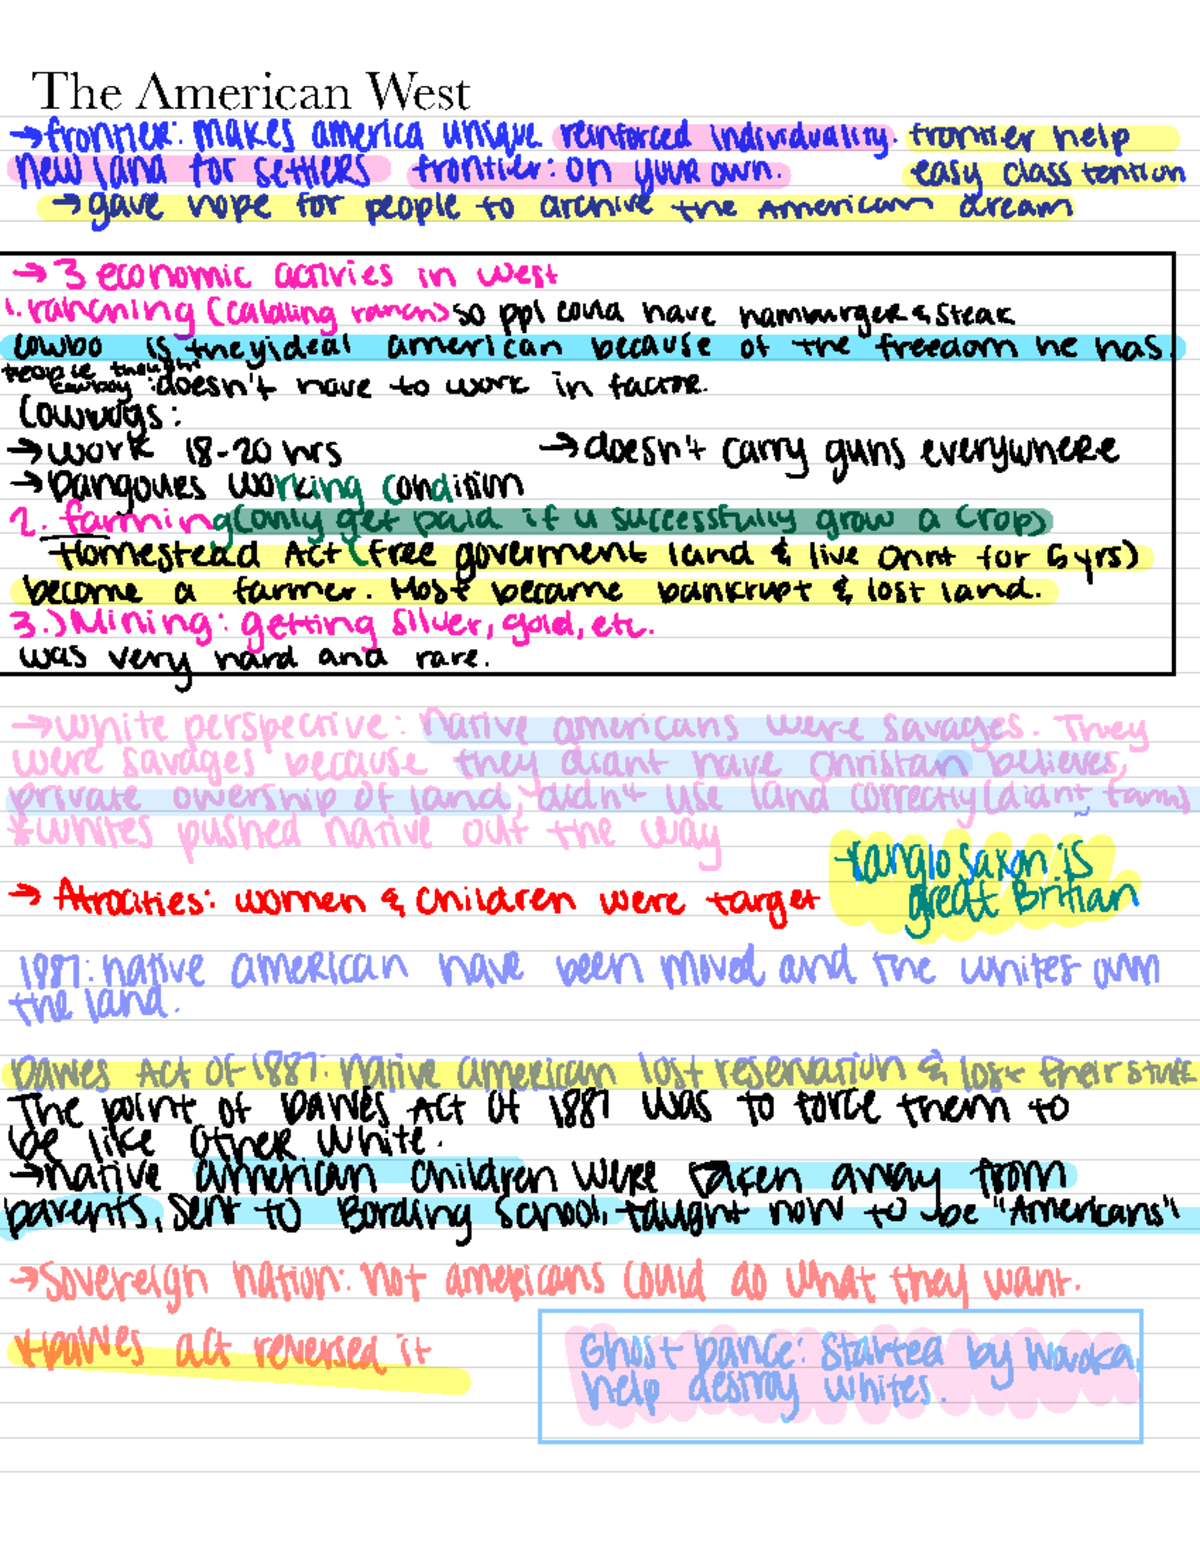 The American West
→frontier: makes america unique reinforced individuality. frontier help
new land for settlers frontier: on your own. easy class tention
→gave hope for people to archive the American dream
→3 economic activies in west
1. ranching (caldling ranch) so ppl could have hamburger & steak
Cowbo is they ideal american because of the "freedom" he has.
People thought
cowboy: doesn't have to work in factore.
Cowboys:
→work 18-20 hrs →doesn't carry guns everywhere
→Dangoues working condition
2. farming (only get paid if u successfully grow a crop)
Homestead Act (free goverment land & live onnt for 5 yrs)
become a farmer. Most became bankrupt & lost land.
3.) Mining: getting silver, gold, etc.
was very hard and rare.
→White perspective: Native americans were savages. They
were savages because they didnt have Christan believes,
private owership of land, didn't use land correctly (didnt farm)
*whites pushed native out the way
*anglo saxon is
great Britian
→ Atrocities: women & children were target
1887: native american have been moved and the whites own
the land.
Dawes Act of 1887: Native american lost reservation & lost their stuff
The point of Dawes Act of 1887 was to force them to
be like other white.
→native american children were taken away from
parents, sent to Bording School, taught how to be "Americans"
→Sovereign nation: not americans could do what they want.
*Dawes act reversed it
Ghost Dance: started by
help destroy whites.